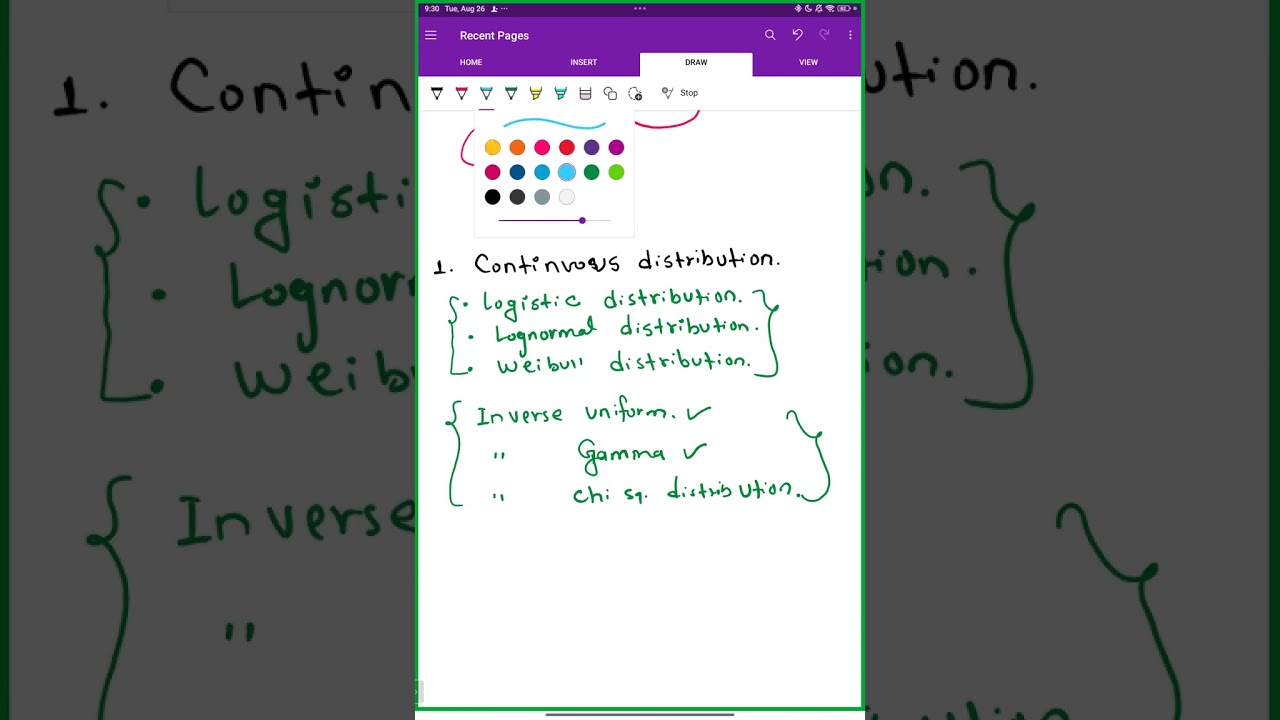 9:30 Tue, Aug 26
Recent Pages
HOME INSERT DRAW VIEW
Stop
1. Continuous distribution.
• Logistic distribution.
• Lognormal distribution.
• Weibull distribution.
Inverse uniform. ✓
" Gamma ✓
" chi sq. distribution.